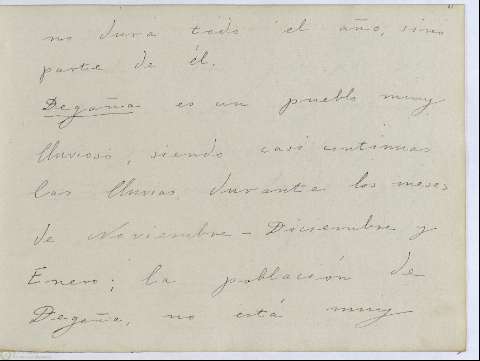 no dura todo el año, sino
parte de él.
Degaña es un pueblo muy
lluvioso, siendo casi continuas
las lluvias durante los meses
de Noviembre - Diciembre y
Enero; la población de
Degaña, no está muy